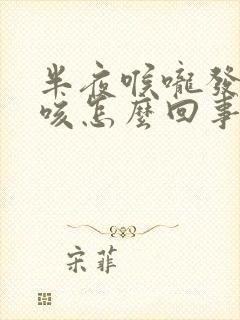 半夜喉嚨發
咳怎麼回事
宋菲